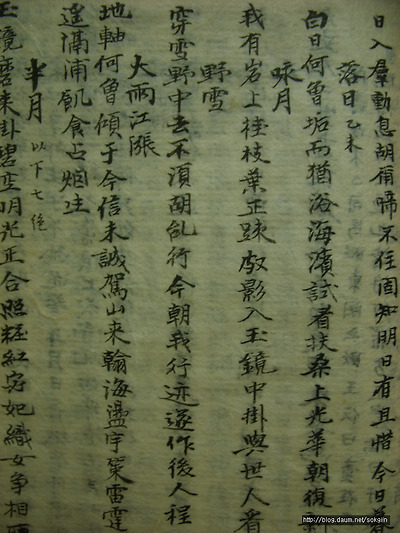 日入羣動息胡啼不住固知明日有且惜今日暮
落日 乙未
白日何曾垢而猶浴海濱試看扶桑上光華朝復新
咏月
我有岩上桂枝葉正踈散影入玉鏡中掛與世人看
野雪
穿雪野中去不須胡亂行今朝我行迹遂作後人程
大雨江漲
地軸何曾傾于今信未誠駕山来翰海盪宇雷霆
遥隔浦飢食占
半月 以下七絶
玉鏡磨来掛碧空明光正合照粧紅宓妃織女爭相
http://blog.daum.net/sokgiin